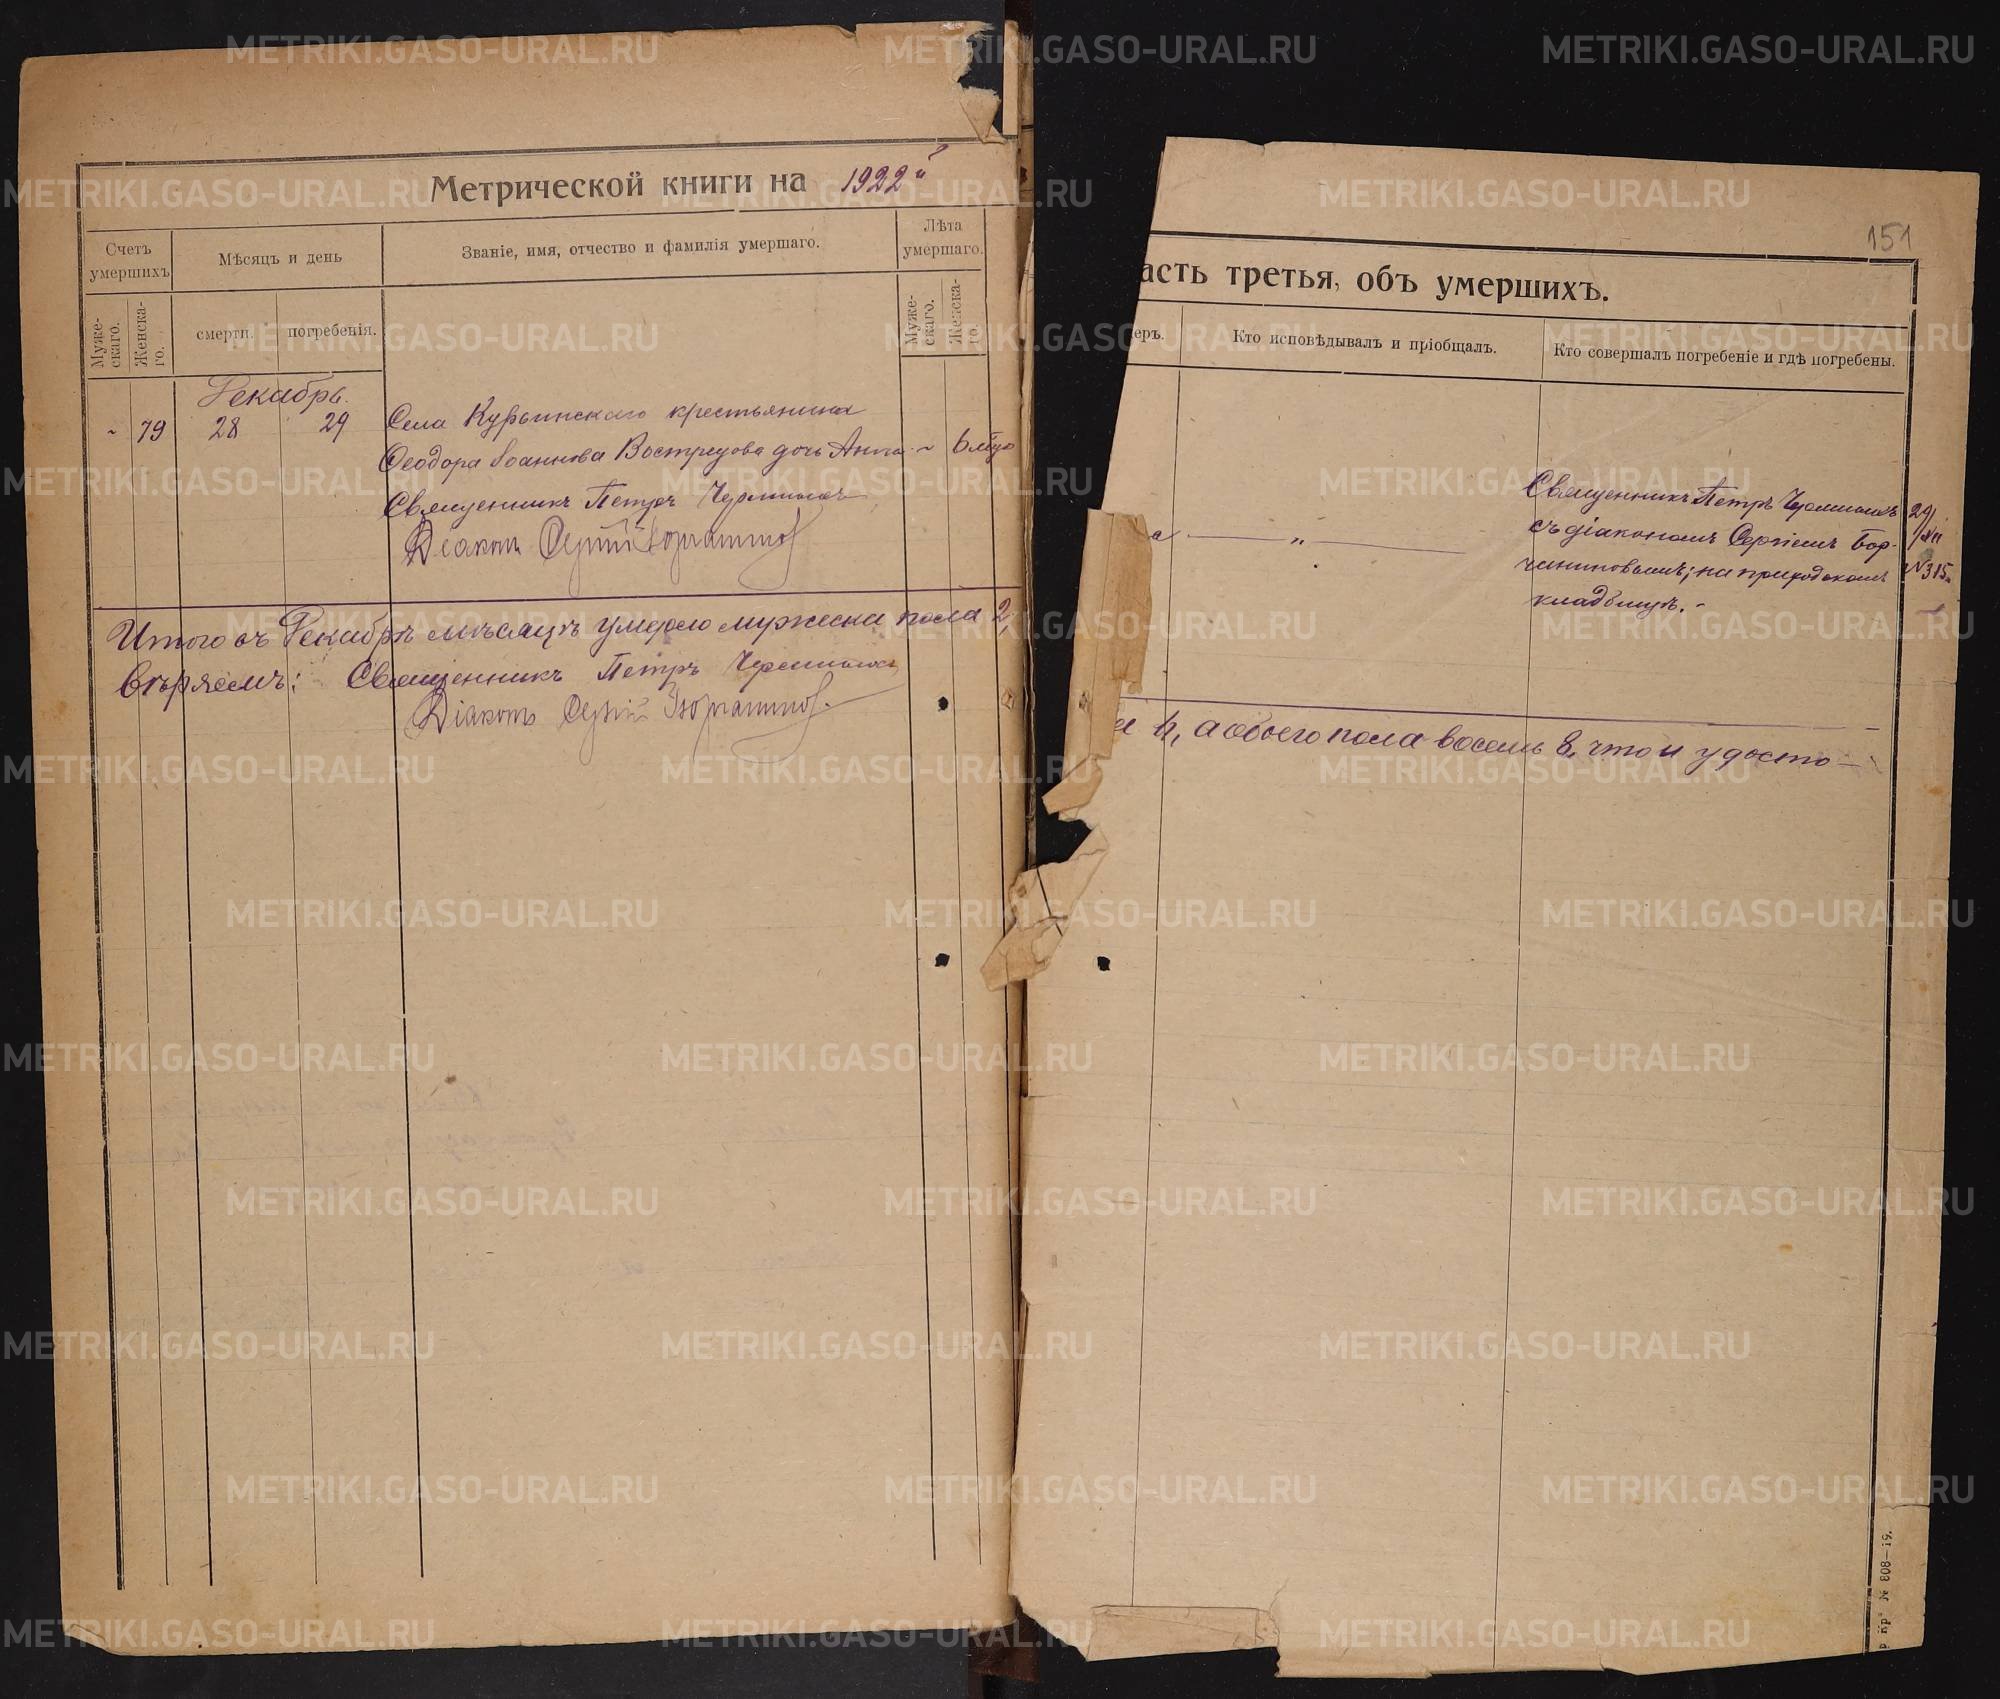 Метрической книги на 1922й г
Счетъ умершихъ
Мѣсяцъ и день
Званіе, имя, отчество и фамилія умершаго.
Лѣта умершаго.
Муже-скаго.
Женска-го.
смерти.
погребенія.
Муже-скаго.
Женска-го.
Декабрь.
79 28 29 Села Курьинскаго крестьянина
Ѳеодора Іоаннова Вострецова дочь Анна 6
Священникъ Петръ
Діаконъ Сергій
Итого въ Декабрѣ мѣсяцѣ умерло мужеска пола 2,
вѣряемъ: Священникъ Петръ
Діаконъ Сергій
151
асть третья, объ умершихъ.
еръ.
Кто исповѣдывалъ и пріобщалъ.
Кто совершалъ погребеніе и гдѣ погребены.
а „
Священникъ Петръ
съ діакономъ Сергіемъ Бор-
чаниновымъ; на приходскомъ
кладбищѣ.
29/XII
№315.
а 6, а обоего пола восемь 8, что и удосто-
р пр. № 808—19.
METRIKI.GASO-URAL.RU